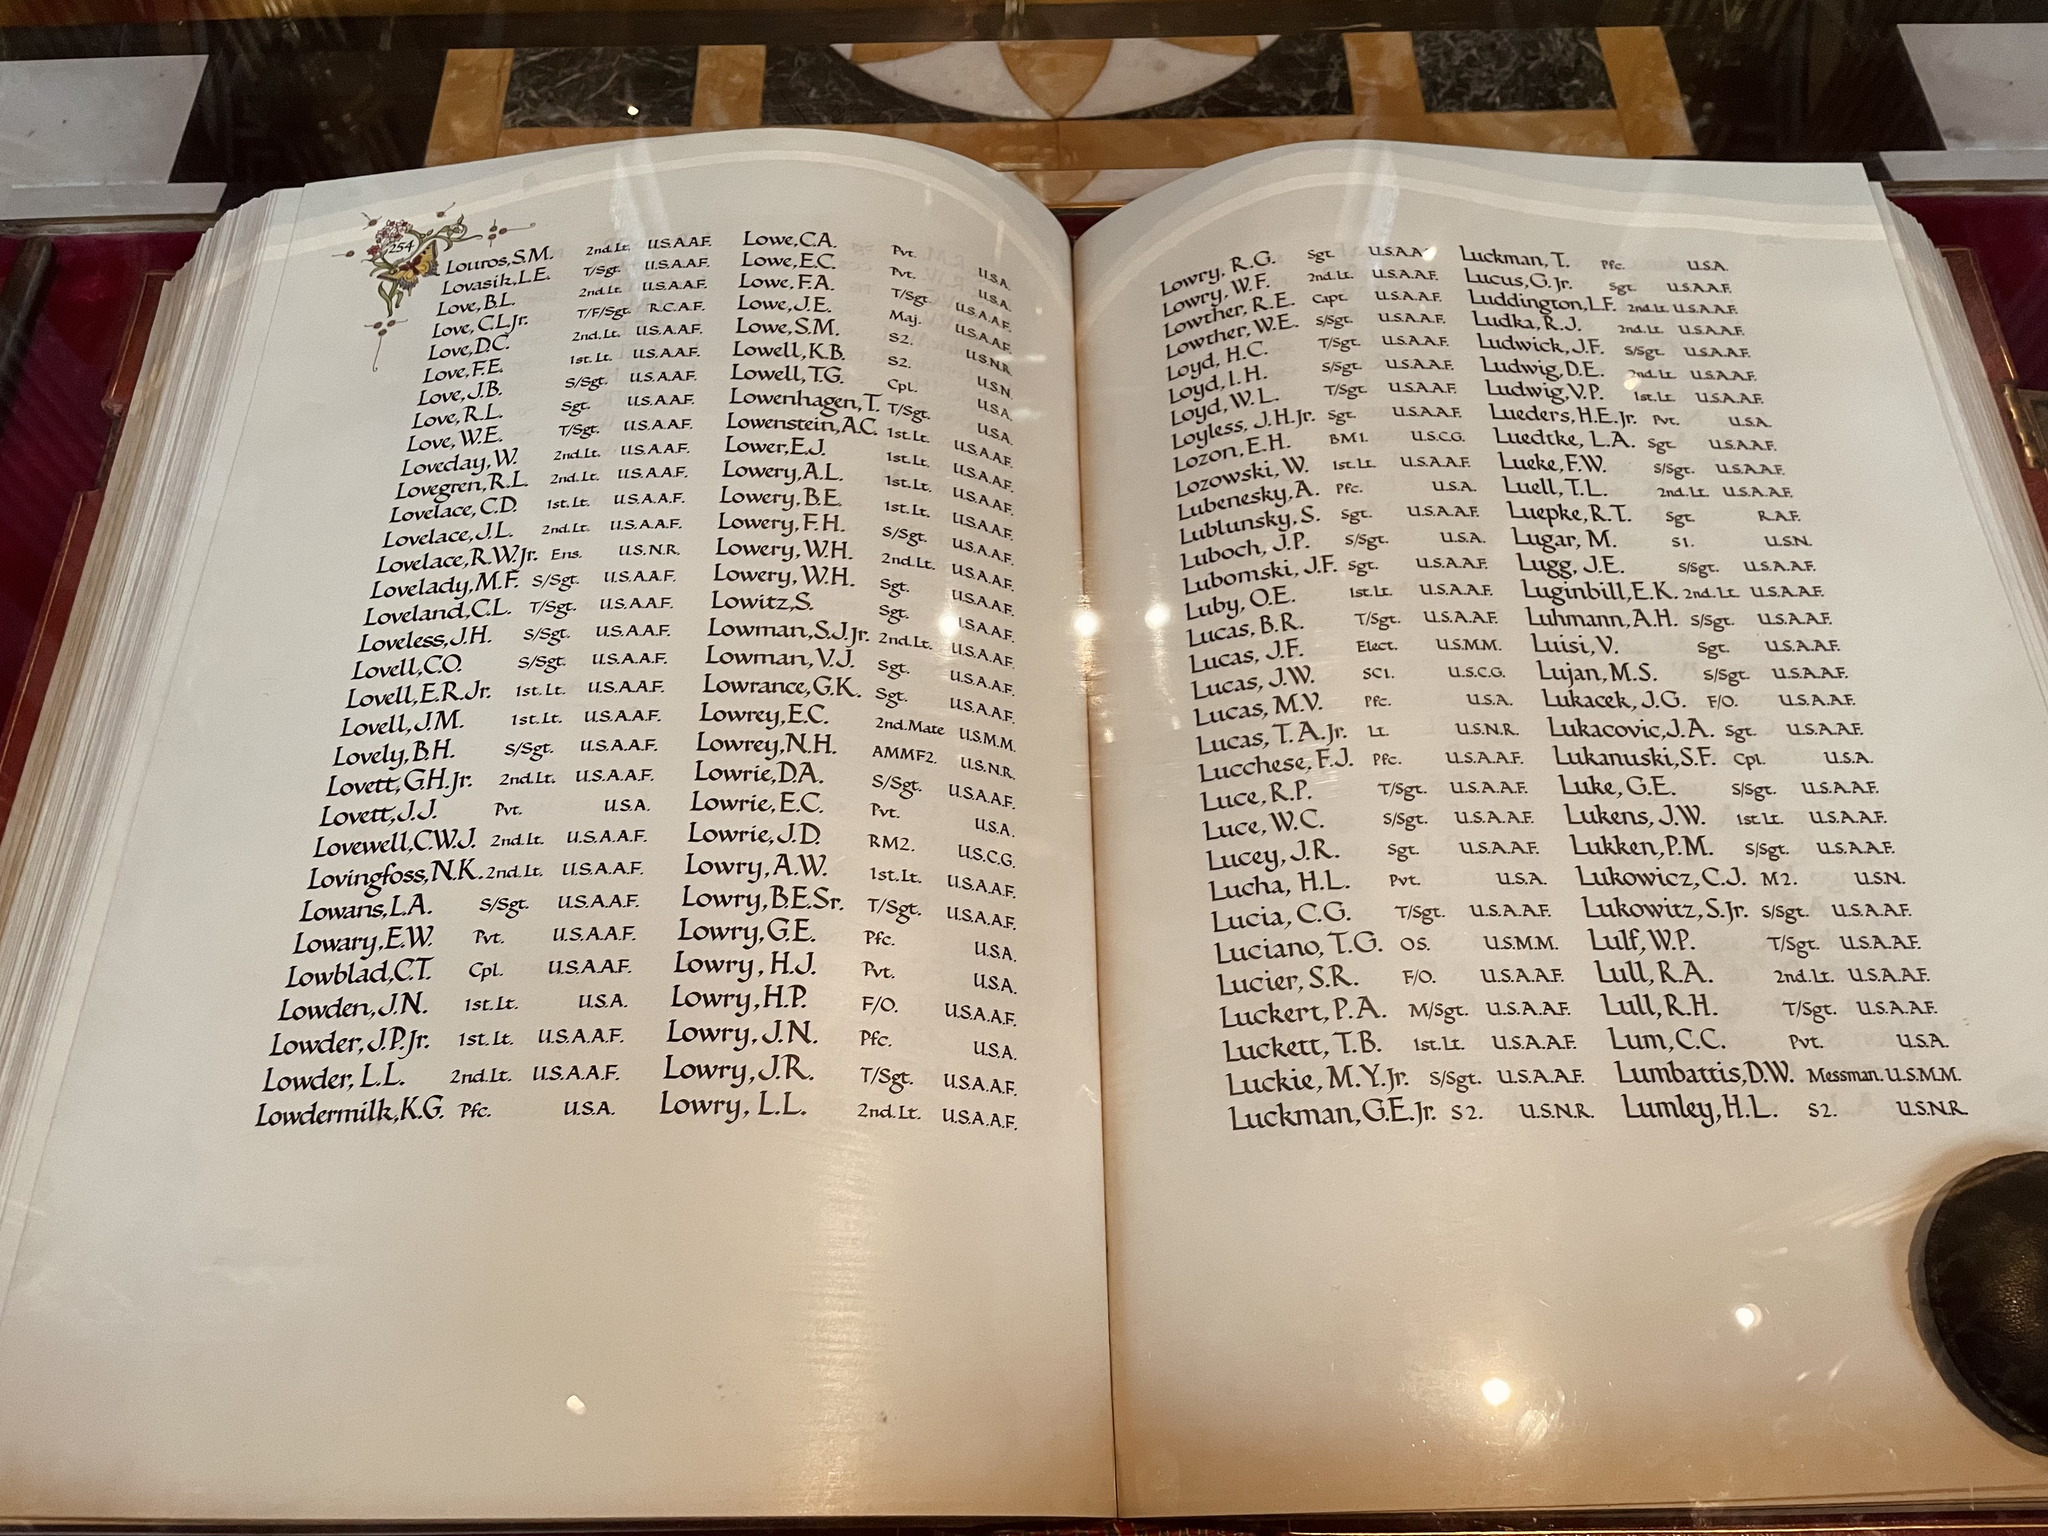 254
Louros,S.M. 2nd.Lt. U.S.A.A.F.
Lovasik,L.E. T/Sgt. U.S.A.A.F.
Love,B.L. 2nd.Lt. U.S.A.A.F.
Love,C.L.Jr. T/F/Sgt. R.C.A.F.
Love,D.C. 2nd.Lt. U.S.A.A.F.
Love,F.E. 1st.Lt. U.S.A.A.F.
Love,J.B. S/Sgt. U.S.A.A.F.
Love,R.L. Sgt. U.S.A.A.F.
Love,W.E. T/Sgt. U.S.A.A.F.
Loveday,W. 2nd.Lt. U.S.A.A.F.
Lovegren,R.L. 2nd.Lt. U.S.A.A.F.
Lovelace,C.D. 1st.Lt. U.S.A.A.F.
Lovelace,J.L. 2nd.Lt. U.S.A.A.F.
Lovelace,R.W.Jr. Ens. U.S.N.R.
Lovelady,M.F. S/Sgt. U.S.A.A.F.
Loveland,C.L. T/Sgt. U.S.A.A.F.
Loveless,J.H. S/Sgt. U.S.A.A.F.
Lovell,C.O. S/Sgt. U.S.A.A.F.
Lovell,E.R.Jr. 1st.Lt. U.S.A.A.F.
Lovell,J.M. 1st.Lt. U.S.A.A.F.
Lovely,B.H. S/Sgt. U.S.A.A.F.
Lovett,G.H.Jr. 2nd.Lt. U.S.A.A.F.
Lovett,J.J. Pvt. U.S.A.
Lovewell,C.W.J. 2nd.Lt. U.S.A.A.F.
Lovingfoss,N.K. 2nd.Lt. U.S.A.A.F.
Lowans,L.A. S/Sgt. U.S.A.A.F.
Lowary,E.W. Pvt. U.S.A.A.F.
Lowblad,C.T. Cpl. U.S.A.A.F.
Lowden,J.N. 1st.Lt. U.S.A.
Lowder,J.P.Jr. 1st.Lt. U.S.A.A.F.
Lowder,L.L. 2nd.Lt. U.S.A.A.F.
Lowdermilk,K.G. Pfc. U.S.A.
Lowe,C.A. Pvt. U.S.A.
Lowe,E.C. Pvt. U.S.A.
Lowe,F.A. T/Sgt. U.S.A.A.F.
Lowe,J.E. Maj. U.S.A.A.F.
Lowe,S.M. S2. U.S.N.R.
Lowell,K.B. S2. U.S.N.
Lowell,T.G. Cpl. U.S.A.
Lowenhagen,T. T/Sgt. U.S.A.
Lowenstein,A.C. 1st.Lt. U.S.A.A.F.
Lower,E.J. 1st.Lt. U.S.A.A.F.
Lowery,A.L. 1st.Lt. U.S.A.A.F.
Lowery,B.E. 1st.Lt. U.S.A.A.F.
Lowery,F.H. S/Sgt. U.S.A.A.F.
Lowery,W.H. 2nd.Lt. U.S.A.A.F.
Lowery,W.H. Sgt. U.S.A.A.F.
Lowitz,S. Sgt. U.S.A.A.F.
Lowman,S.J.Jr. 2nd.Lt. U.S.A.A.F.
Lowman,V.J. Sgt. U.S.A.A.F.
Lowrance,G.K. Sgt. U.S.A.A.F.
Lowrey,E.C. 2nd.Mate U.S.M.M.
Lowrey,N.H. AMMF2. U.S.N.R.
Lowrie,D.A. S/Sgt. U.S.A.A.F.
Lowrie,E.C. Pvt. U.S.A.
Lowrie,J.D. RM2. U.S.C.G.
Lowry,A.W. 1st.Lt. U.S.A.A.F.
Lowry,B.E.Sr. T/Sgt. U.S.A.A.F.
Lowry,G.E. Pfc. U.S.A.
Lowry,H.J. Pvt. U.S.A.
Lowry,H.P. F/O. U.S.A.A.F.
Lowry,J.N. Pfc. U.S.A.
Lowry,J.R. T/Sgt. U.S.A.A.F.
Lowry,L.L. 2nd.Lt. U.S.A.A.F.
Lowry,R.G. Sgt. U.S.A.A.F.
Lowry,W.F. 2nd.Lt. U.S.A.A.F.
Lowther,R.E. Capt. U.S.A.A.F.
Lowther,W.E. S/Sgt. U.S.A.A.F.
Loyd,H.C. T/Sgt. U.S.A.A.F.
Loyd,I.H. S/Sgt. U.S.A.A.F.
Loyd,W.L. T/Sgt. U.S.A.A.F.
Loyless,J.H.Jr. Sgt. U.S.A.A.F.
Lozon,E.H. BM1. U.S.C.G.
Lozowski,W. 1st.Lt. U.S.A.A.F.
Lubenesky,A. Pfc. U.S.A.
Lublunsky,S. Sgt. U.S.A.A.F.
Luboch,J.P. S/Sgt. U.S.A.
Lubomski,J.F. Sgt. U.S.A.A.F.
Luby,O.E. 1st.Lt. U.S.A.A.F.
Lucas,B.R. T/Sgt. U.S.A.A.F.
Lucas,J.F. Elect. U.S.M.M.
Lucas,J.W. SC1. U.S.C.G.
Lucas,M.V. Pfc. U.S.A.
Lucas,T.A.Jr. Lt. U.S.N.R.
Lucchese,F.J. Pfc. U.S.A.A.F.
Luce,R.P. T/Sgt. U.S.A.A.F.
Luce,W.C. S/Sgt. U.S.A.A.F.
Lucey,J.R. Sgt. U.S.A.A.F.
Lucha,H.L. Pvt. U.S.A.
Lucia,C.G. T/Sgt. U.S.A.A.F.
Luciano,T.G. OS. U.S.M.M.
Lucier,S.R. F/O. U.S.A.A.F.
Luckert,P.A. M/Sgt. U.S.A.A.F.
Luckett,T.B. 1st.Lt. U.S.A.A.F.
Luckie,M.Y.Jr. S/Sgt. U.S.A.A.F.
Luckman,G.E.Jr. S2. U.S.N.R.
Luckman,T. Pfc. U.S.A.
Lucus,G.Jr. Sgt. U.S.A.A.F.
Luddington,L.F. 2nd.Lt. U.S.A.A.F.
Ludka,R.J. 2nd.Lt. U.S.A.A.F.
Ludwick,J.F. S/Sgt. U.S.A.A.F.
Ludwig,D.E. 2nd.Lt. U.S.A.A.F.
Ludwig,V.P. 1st.Lt. U.S.A.A.F.
Lueders,H.E.Jr. Pvt. U.S.A.
Luedtke,L.A. Sgt. U.S.A.A.F.
Lueke,F.W. S/Sgt. U.S.A.A.F.
Luell,T.L. 2nd.Lt. U.S.A.A.F.
Luepke,R.T. Sgt. R.A.F.
Lugar,M. S1. U.S.N.
Lugg,J.E. S/Sgt. U.S.A.A.F.
Luginbill,E.K. 2nd.Lt. U.S.A.A.F.
Luhmann,A.H. S/Sgt. U.S.A.A.F.
Luisi,V. Sgt. U.S.A.A.F.
Lujan,M.S. S/Sgt. U.S.A.A.F.
Lukacek,J.G. F/O. U.S.A.A.F.
Lukacovic,J.A. Sgt. U.S.A.A.F.
Lukanuski,S.F. Cpl. U.S.A.
Luke,G.E. S/Sgt. U.S.A.A.F.
Lukens,J.W. 1st.Lt. U.S.A.A.F.
Lukken,P.M. S/Sgt. U.S.A.A.F.
Lukowicz,C.J. M2. U.S.N.
Lukowitz,S.Jr. S/Sgt. U.S.A.A.F.
Lulf,W.P. T/Sgt. U.S.A.A.F.
Lull,R.A. 2nd.Lt. U.S.A.A.F.
Lull,R.H. T/Sgt. U.S.A.A.F.
Lum,C.C. Pvt. U.S.A.
Lumbattis,D.W. Messman. U.S.M.M.
Lumley,H.L. S2. U.S.N.R.